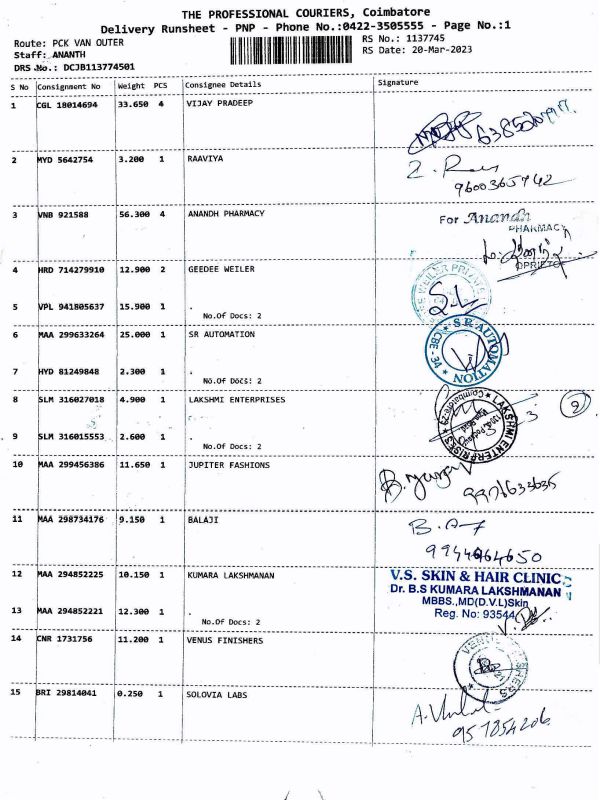 THE PROFESSIONAL COURIERS, Coimbatore
Delivery Runsheet - PNP - Phone No.:0422-3505555 - Page No.:1
Route: PCK VAN OUTER
Staff: ANANTH
DRS No.: DCJB113774501
RS No.: 1137745
RS Date: 20-Mar-2023
S No Consignment No Weight PCS Consignee Details Signature
1 CGL 18014694 33.650 4 VIJAY PRADEEP
2 MYD 5642754 3.200 1 RAAVIYA
9600365742
3 VNB 921588 56.300 4 ANANDH PHARMACY
For Anandh
PHARMACY
4 HRD 714279910 12.900 2 GEEDEE WEILER
5 VPL 941805637 15.900 1 .
No.Of Docs: 2
6 MAA 299633264 25.000 1 SR AUTOMATION
S R AUTOMATION
CBE - 34
7 HYD 81249848 2.300 1 .
No.Of Docs: 2
8 SLM 316027018 4.900 1 LAKSHMI ENTERPRISES
LAKSHMI ENTERPRISES
2
9 SLM 316015553 2.600 1 .
No.Of Docs: 2
10 MAA 299456386 11.650 1 JUPITER FASHIONS
11 MAA 298734176 9.150 1 BALAJI
12 MAA 294852225 10.150 1 KUMARA LAKSHMANAN
V.S. SKIN & HAIR CLINIC
Dr. B.S KUMARA LAKSHMANAN
MBBS.,MD(D.V.L)Skin
Reg. No: 93544
13 MAA 294852221 12.300 1 .
No.Of Docs: 2
14 CNR 1731756 11.200 1 VENUS FINISHERS
15 BRI 29814041 0.250 1 SOLOVIA LABS